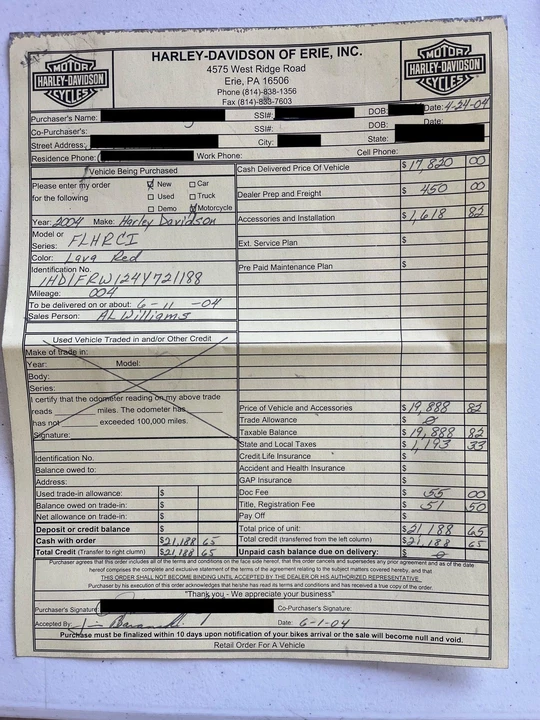 MOTOR
HARLEY-DAVIDSON
CYCLES
HARLEY-DAVIDSON OF ERIE, INC.
4575 West Ridge Road
Erie, PA 16506
Phone (814)-838-1356
Fax (814)-838-7603
MOTOR
HARLEY-DAVIDSON
CYCLES
Purchaser's Name: SSI#: DOB: Date: 4-24-04
Co-Purchaser's: SSI#: DOB: Date:
Street Address: City: State:
Residence Phone:( Work Phone: Cell Phone:
Vehicle Being Purchased
Please enter my order New Car
for the following Used Truck
Demo Motorcycle
Year: 2004 Make: Harley Davidson
Model or
Series: FLHRCI
Color: Lava Red
Identification No.
1HD1FRW124Y721188
Mileage: 004
To be delivered on or about: 6-11-04
Sales Person: AL Williams
Used Vehicle Traded in and/or Other Credit
Make of trade in:
Year: Model:
Body:
Series:
I certify that the odometer reading on my above trade
reads miles. The odometer has
has not exceeded 100,000 miles.
Signature:
Identification No.
Balance owed to:
Address:
Used trade-in allowance: $
Balance owed on trade-in: $
Net allowance on trade-in: $
Deposit or credit balance $
Cash with order $21,188 65
Total Credit (Transfer to right clumn) $21,188 65
Cash Delivered Price Of Vehicle $17,820 00
Dealer Prep and Freight $ 450 00
Accessories and Installation $1,618 82
Ext. Service Plan $
Pre Paid Maintenance Plan $
Price of Vehicle and Accessories $19,888 82
Trade Allowance $ 0
Taxable Balance $19,888 82
State and Local Taxes $1,193 33
Credit Life Insurance $
Accident and Health Insurance $
GAP Insurance $
Doc Fee $ 55 00
Title, Registration Fee $ 51 50
Pay Off $
Total price of unit: $21,188 65
Total credit (transferred from the left column) $21,188 65
Unpaid cash balance due on delivery: $ 0
Purchaser agrees that this order includes all of the terms and conditions on the face side hereof, that this order cancels and supersedes any prior agreement and as of the date
hereof comprises the complete and exclusive statement of the terms of the agreement relating to the subject matters covered hereby, and that
THIS ORDER SHALL NOT BECOME BINDING UNTIL ACCEPTED BY THE DEALER OR HIS AUTHORIZED REPRESENTATIVE.
Purchaser by his execution of this order acknowledges that he/she has read its terms and conditions and has received a true copy of the order.
"Thank you - We appreciate your business"
Purchaser's Signature: Co-Purchaser's Signature:
Accepted By: Date: 6-1-04
Purchase must be finalized within 10 days upon notification of your bikes arrival or the sale will become null and void.
Retail Order For A Vehicle